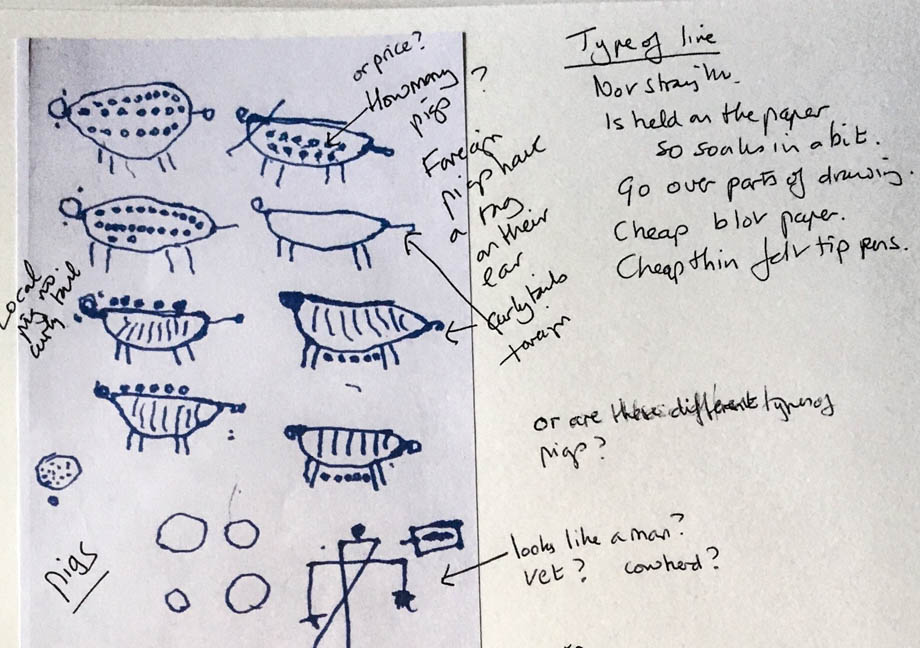 or price?
How many
pigs ?
Foreign
pigs have
a ring
on their
ear
Curly tails
foreign
Local
pig no.
curly tail
pigs
Type of line
Not straight.
Is held on the paper
so soaks in a bit.
go over parts of drawing.
Cheap blot paper.
Cheap thin felt tip pens.
or are these different types of
pigs?
looks like a man?
vet? cowherd?